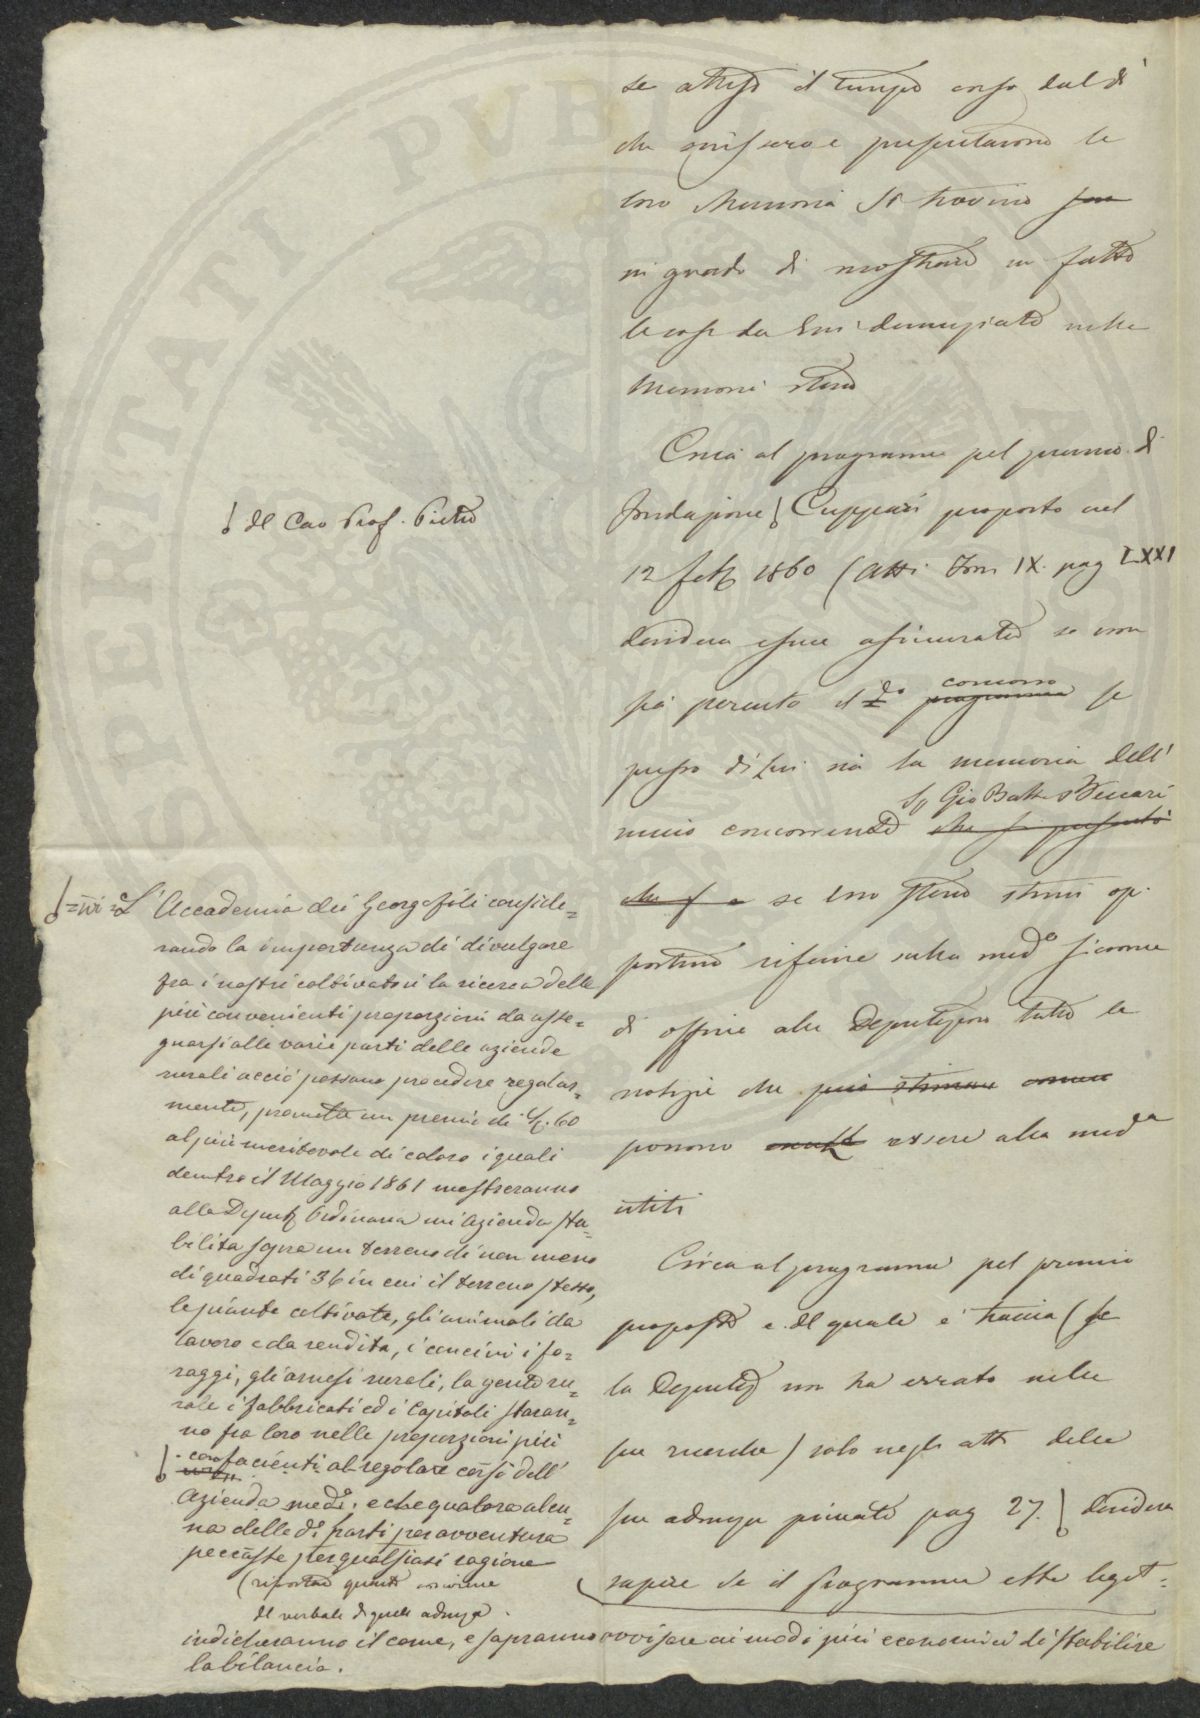 se atteso il tempo corso dal dì
che scrissero e presentarono le
loro Memorie si trovino
in grado di mostrare in fatto
le cose da Essi denunziate nelle
Memorie stesse
Circa al programma pel premio di
fondazione Cuppari proposto nel
12 Febb 1860 (Atti Tom IX. pag LXXI
desidera essere assicurata se non
sia perento il do programma concorso se
presso di lui sia la memoria dell'
unico concorrente che si presentò Sig Gio Batta
che se loro stesso stimi op-
portuno riferire sulla meda siccome
di offrire alla Deputazione tutte le
notizie che può stimare
possono essere alla meda
utili
Circa al programma pel premio
proposto e del quale è traccia (se
la Deputaz non ha errato nelle
sue ricerche) solo negli atti della
sua adunza privata pag 27. desidera
sapere se il programma ebbe legit-
del Cav Prof. Pietro
L'Accademia dei Georgofili conside=
rando la importanza di divulgare
fra i nostri coltivatori la ricerca delle
più convenienti proporzioni da asse=
gnarsi alle varie parti delle aziende
rurali acciò possano procedere regolar=
mente, promette un premio di 60
al più meritevole di coloro i quali
dentro il Maggio 1861 mostreranno
alla Deputaz Ordinaria un'azienda sta=
bilita sopra un terreno di non meno
di quadrati 36 in cui il terreno stesso,
le piante coltivate, gli animali da
lavoro e da rendita, i concimi i fo=
raggi, gli arnesi rurali, la gente ru=
rale i fabbricati ed i Capitali staran=
no fra loro nelle proporzioni più
confacienti al regolare corso dell'
Azienda meda. e che qualora alcu=
na delle de parti per avventura
peccasse per qualsiasi ragione
(riportare quanto
del verbale di quella adunza.
indicheranno il come, e sapranno avvisare ai modi più economici di stabilire
la bilancia.